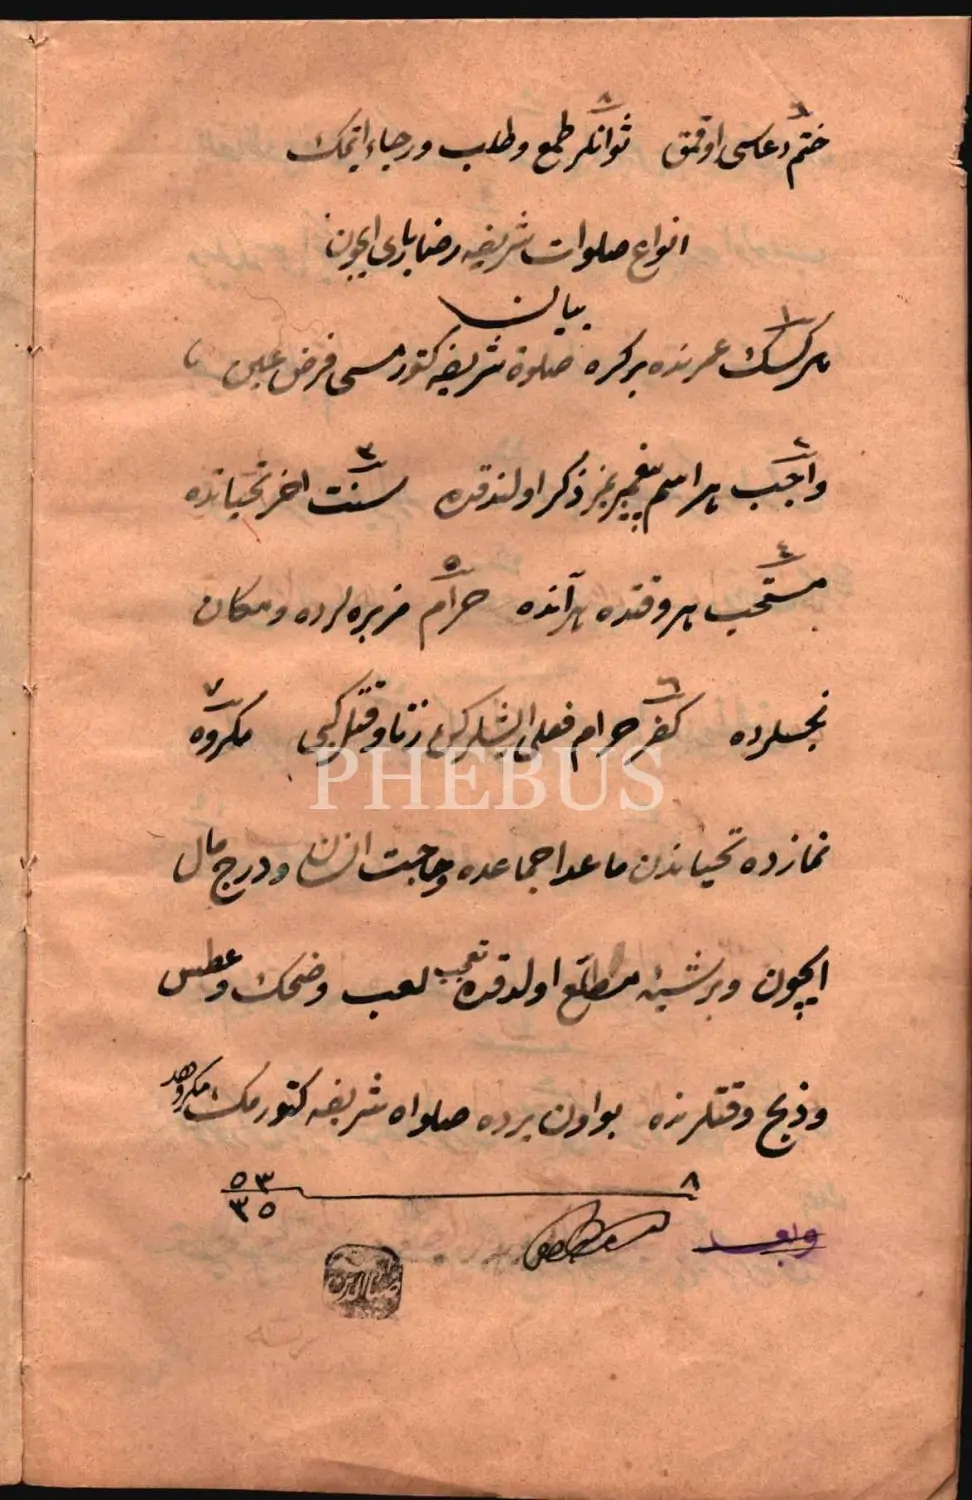 ٦ ٨
ختم دعاسى اوقمق ثوابكر طمع و طلب و رجاء ايتمك
انواع صلوات شريفه رضا بارى ايچون
بيان
١
هر كسك عمرنده بر كره صلوة شريفه كتورمسى فرض عين
٢ ٣
واجب هر اسم پيغمبريمز ذكر اولندقده سنت اخر تحياتده
٤ ٥
مستحب هر وقتده هر آنده حرام مزبره لرده و مكان
٦ ٧
نجسلرده كفر حرام فعلى ايشلركن زنا و قتل كبى مكروه
نمازده تحياتدن ماعدا جماعده و حاجت انسان و درج مال
ايچون و بر شيئه مطلع اولدقده تعجب لعب و ضحك و عطس
و ذبح وقتلرنده بو اون يرده صلواه شريفه كتورمك مكروهدر
٥٣ ٨
٣٥
وبعد
PHEBUS